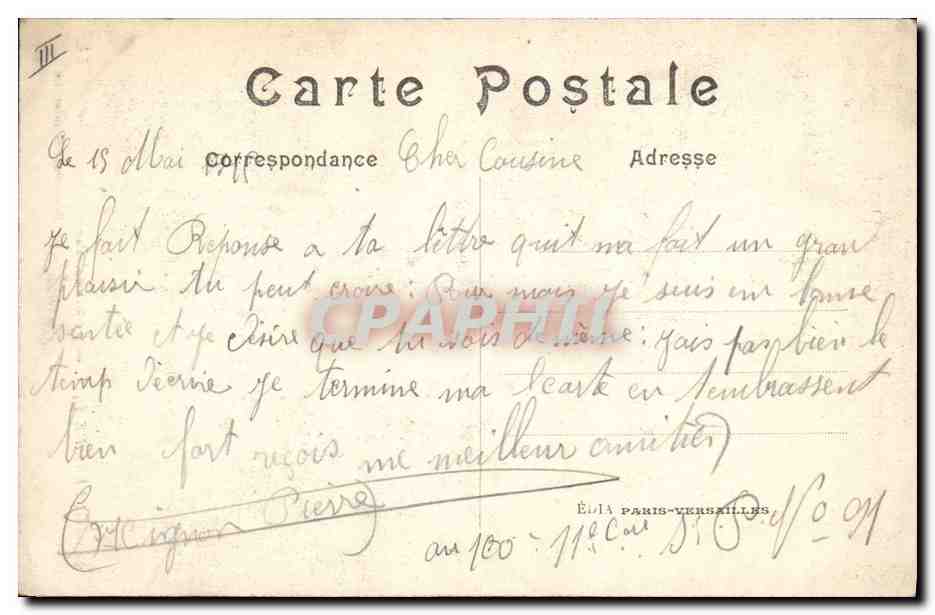 III
Carte Postale
Le 15 Mai Correspondance Cher Cousine Adresse
Je fait Reponse a ta lettre quit ma fait un gran
plaisir tu peut croire : Pour mois je suis en bonne
santie et je désire que tu sois de même : jais pas bien le
temp décrire je termine ma carte en tembrassent
bien fort reçois me meilleur amitiés
Mignon Pierre
CPAPHIL
EDIA PARIS-VERSAILLES
au 100e 11e Cie S. P. No 91